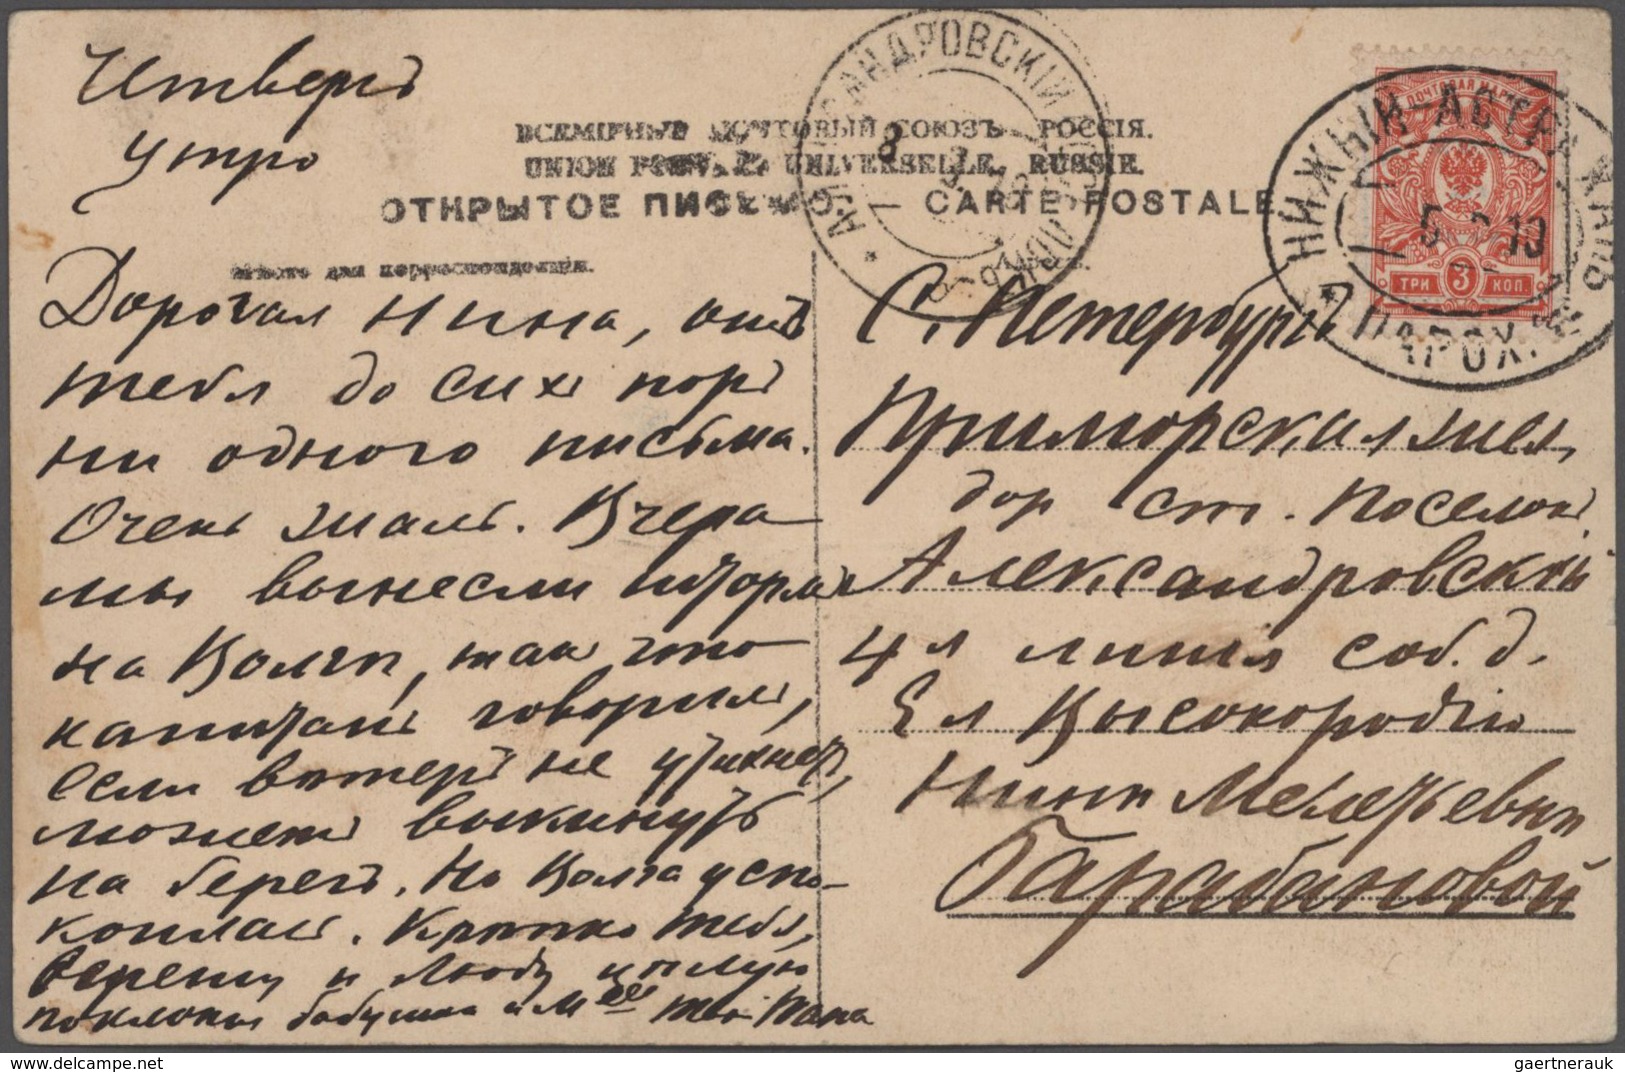 Четвергъ
утро
ВСЕМІРНЫЙ ПОЧТОВЫЙ СОЮЗЪ. РОССІЯ.
UNION POSTALE UNIVERSELLE. RUSSIE.
ОТКРЫТОЕ ПИСЬМО. — CARTE POSTALE
Мѣсто для корреспонденціи.
Дорогая Нина, отъ
тебя до сихъ поръ
ни одного письма.
Очень жаль. Вчера
мы вынесли шторма
на Волгѣ, такъ что
капитанъ говорилъ,
если вѣтеръ не утихнетъ,
можетъ выкинуть
на берегъ. Но Волга успо-
коилась. Крѣпко тебя,
Сережу и Любу цѣлую
поклоны бабушкѣ и M<sup>lle</sup> твоя папа
АЛЕКСАНДРОВСКІЙ
8
НИЖНІЙ-АСТРАХАНЬ
5 10
ПАРОХ.
ПОЧТОВАЯ МАРКА
ТРИ 3 КОП.
С. Петербургъ
Приморская жел.
дор ст. Поселокъ
Александровскій
4я линія соб. д.
Ея Высокородію
Нинѣ Мелетьевнѣ
Барабановой
delcampe.net
gaertnerauk